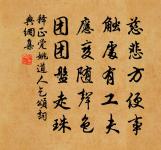 慈悲方便事
觸處有工夫
應度隨聲色
團團盤走珠
釋正覺姚道人乞頌詞
典網集